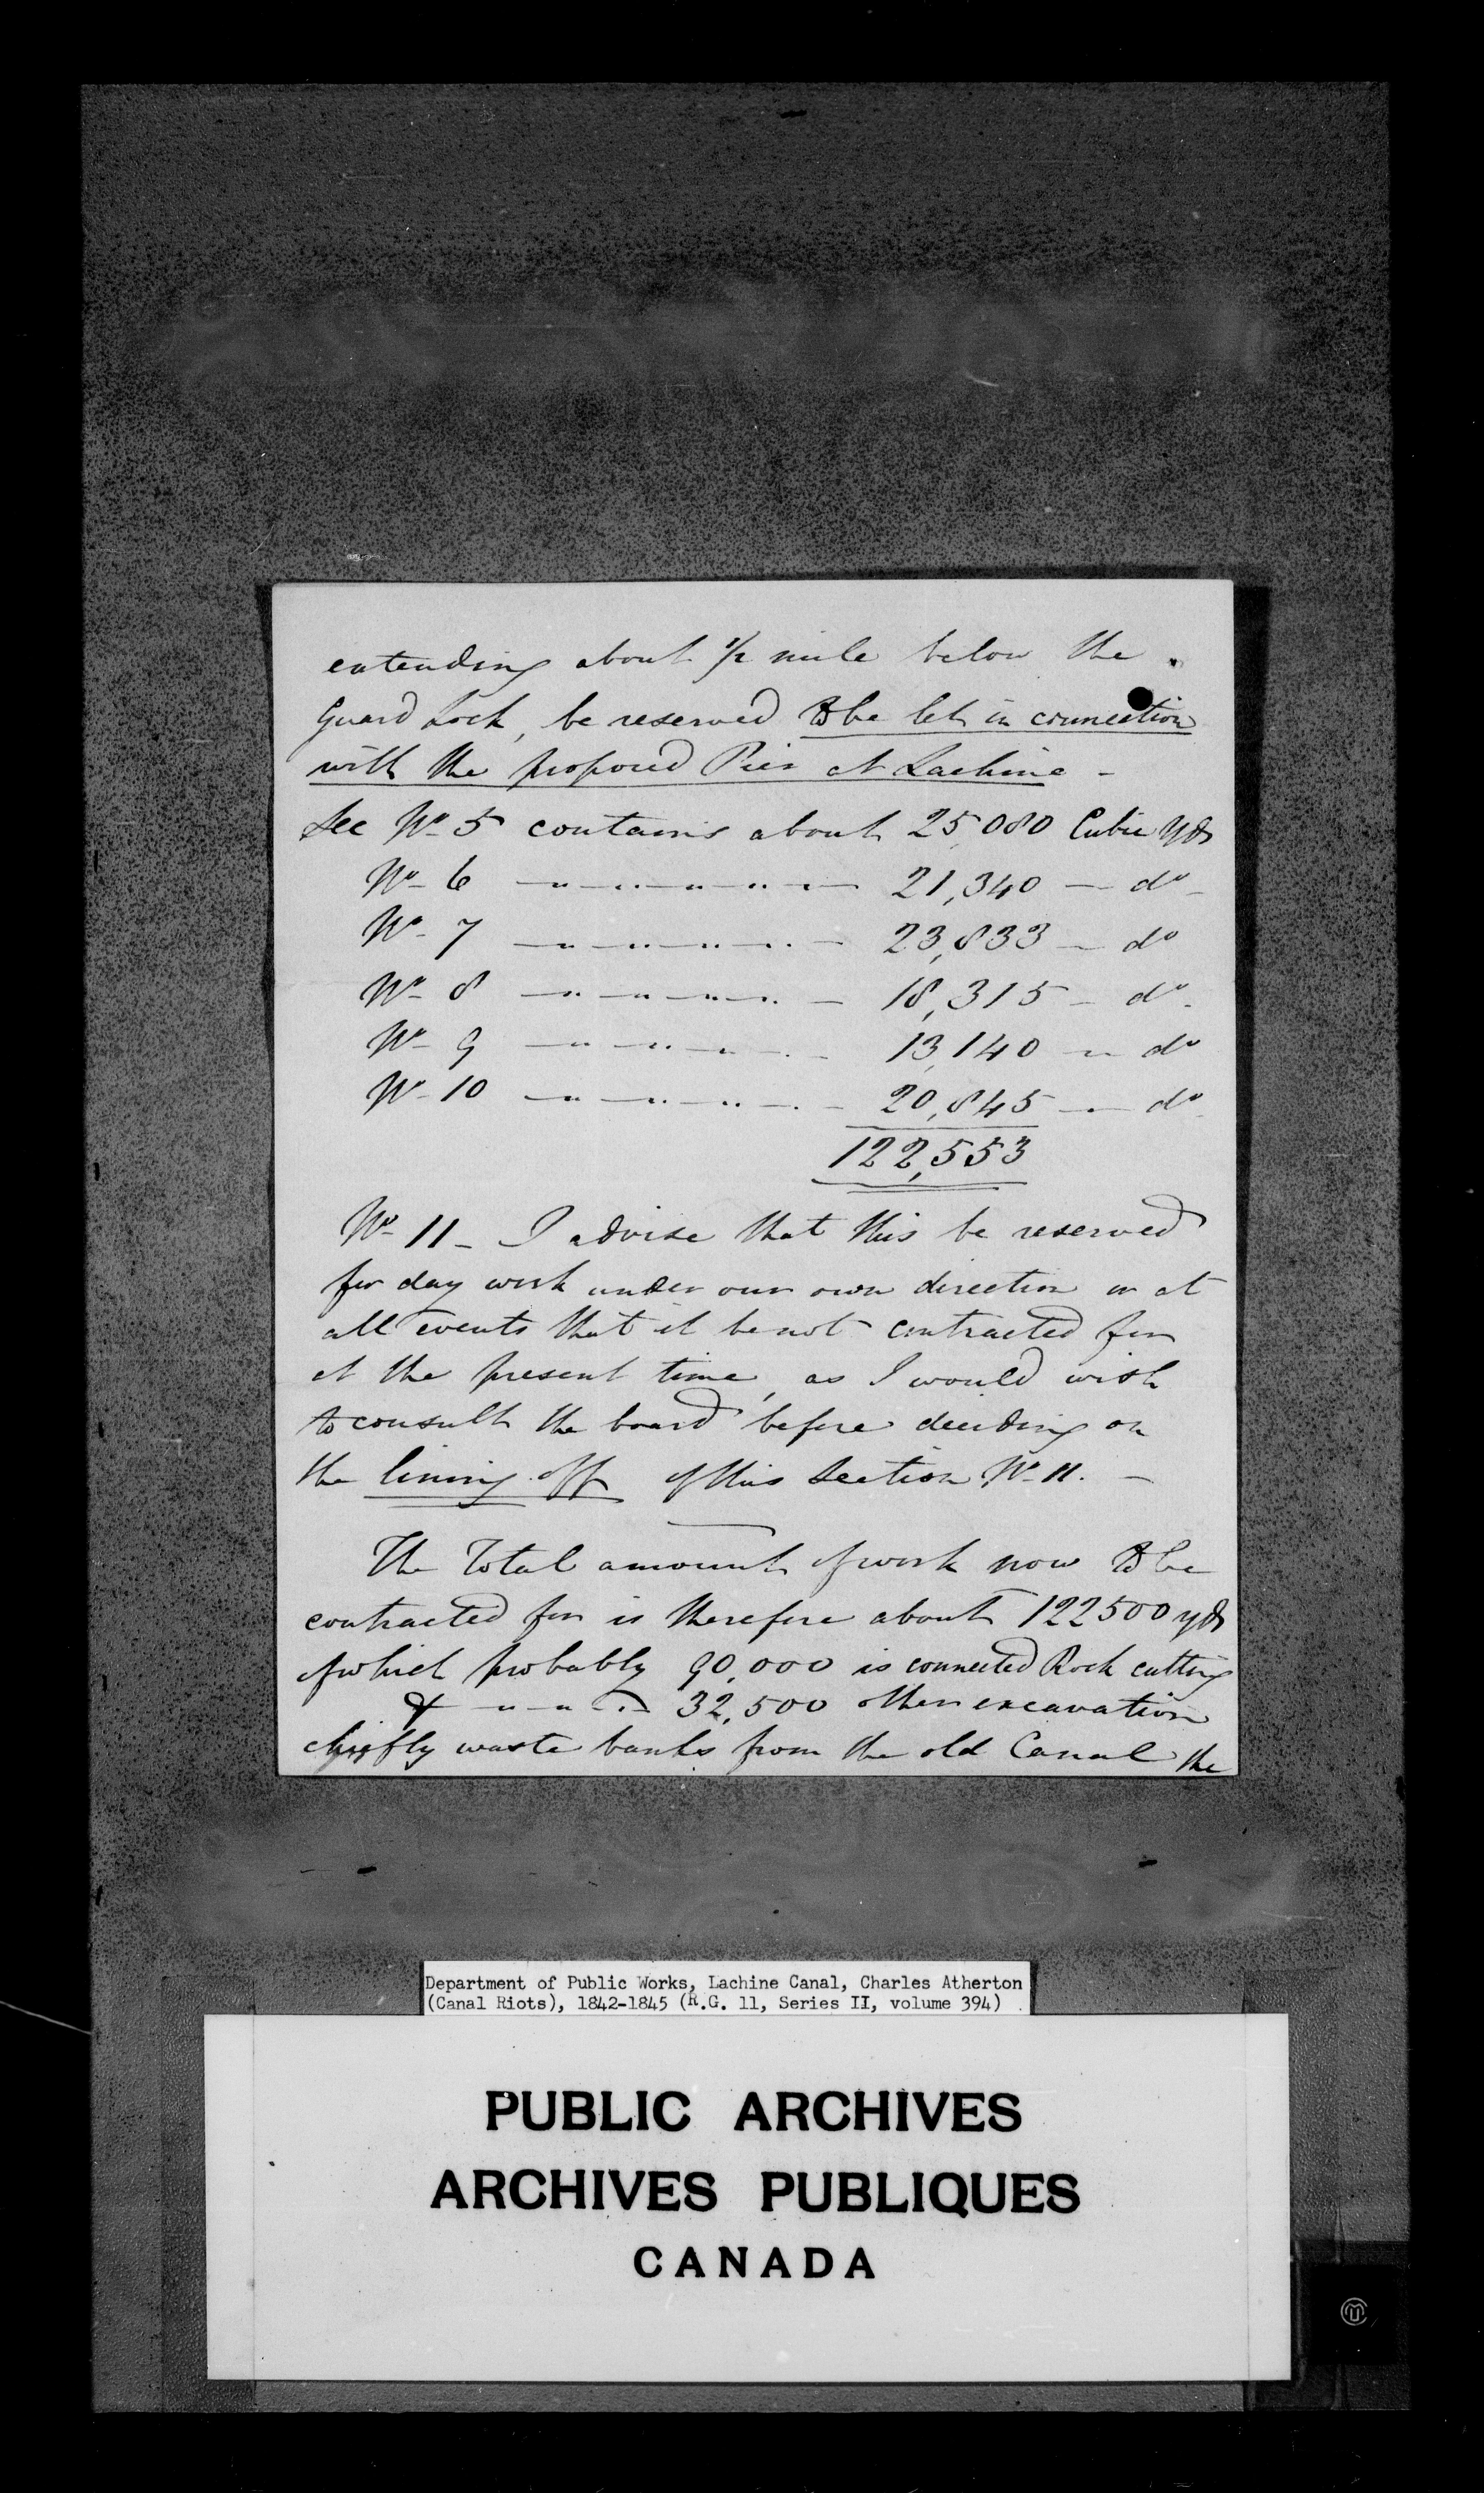 extending about 1/2 mile below the
Guard Lock, be reserved to be let in connection
with the proposed Pier at Lachine -
Sec No 5 contains about 25,080 Cubic Yds
No 6 — " — " — " — " — 21,340 — do -
No 7 — " — " — " — " — 23,833 — do
No 8 — " — " — " — " — 18,315 — do -
No 9 — " — " — " — " — 13,140 — do
No 10 — " — " — " — " — 20,845 — do
122,553
No 11 - I advise that this be reserved
for day work under our own direction or at
all events that it be not contracted for
at the present time, as I would wish
to consult the board before deciding on
the lining off of this Section No 11. -
The Total amount of work now to be
contracted for is therefore about 122500 yds
of which probably 90,000 is connected Rock cutting
& - " - " - " - 32,500 other excavation
chiefly waste banks from the old Canal the
Department of Public Works, Lachine Canal, Charles Atherton
(Canal Riots), 1842-1845 (R.G. 11, Series II, volume 394)
PUBLIC ARCHIVES
ARCHIVES PUBLIQUES
CANADA